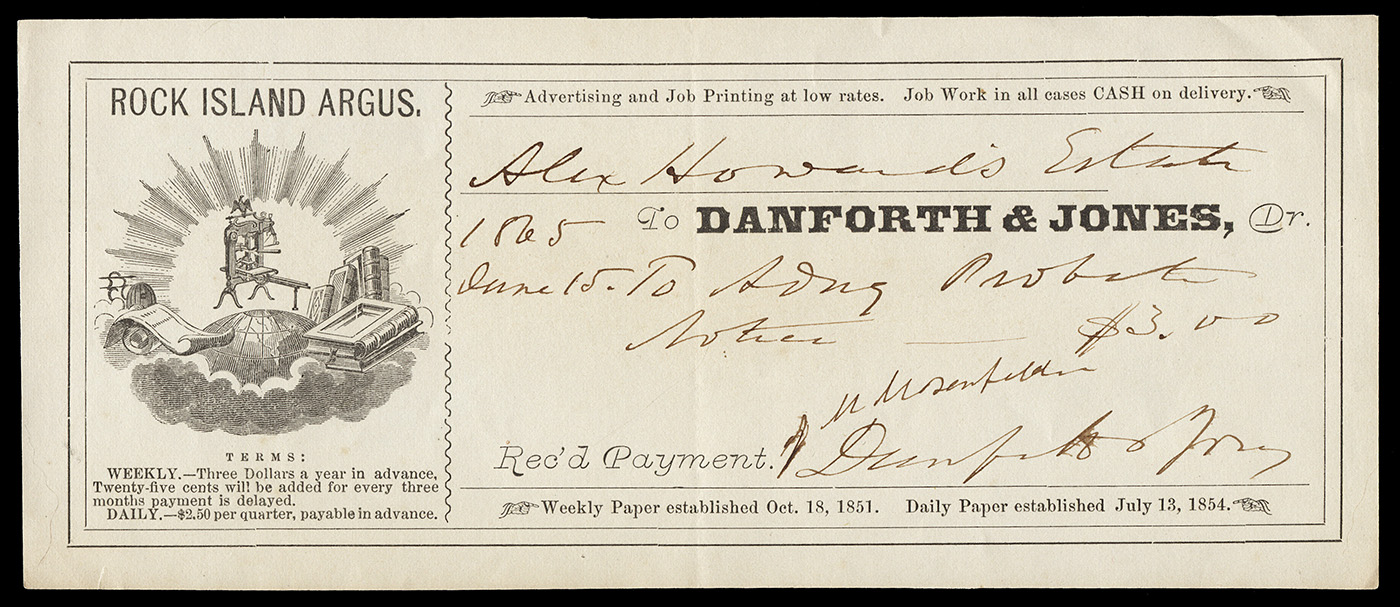 ROCK ISLAND ARGUS.
TERMS:
WEEKLY.—Three Dollars a year in advance,
Twenty-five cents will be added for every three
months payment is delayed.
DAILY.—$2.50 per quarter, payable in advance.
Advertising and Job Printing at low rates. Job Work in all cases CASH on delivery.
Alex Howard's Estate
1865 To DANFORTH & JONES, Dr.
June 15. To Advg Probate
Notice — $3.00
Rec'd Payment. Danforth & Jones
Weekly Paper established Oct. 18, 1851. Daily Paper established July 13, 1854.